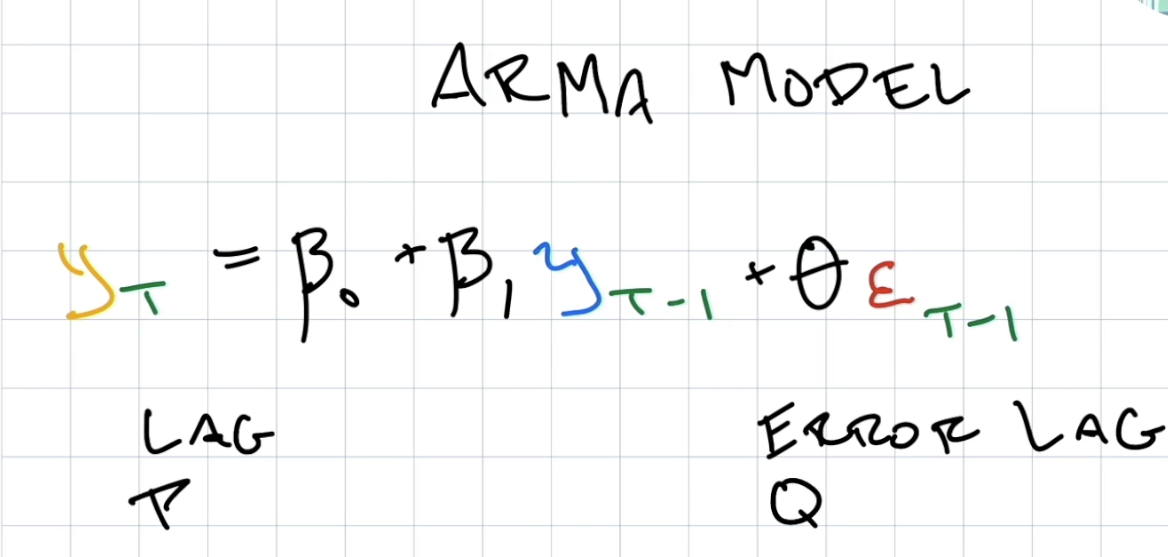 ARMA MODEL
y_T = β₀ + β₁ y_T-1 + θ ε_T-1
LAG ERROR LAG
P Q